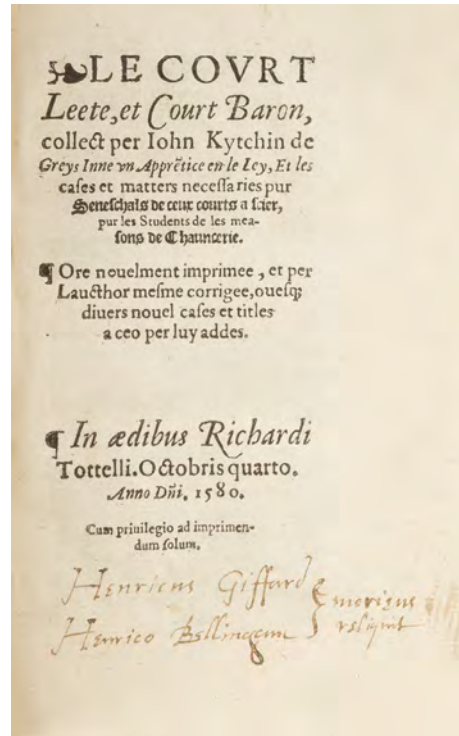 LE COVRT
Leete, et Court Baron,
collect per Iohn Kytchin de
Greys Inne vn Apprẽtice en le Ley, Et les
cases et matters necessaries pur
Seneschals de ceux courts a scier,
pur les Students de les mea-
sons de Chauncerie.
¶ Ore nouelment imprimee, et per
Laucthor mesme corrigee, ouesqꝫ
diuers nouel cases et titles
a ceo per luy addes.
¶ In ædibus Richardi
Tottelli. Octobris quarto.
Anno Dñi. 1580.
Cum priuilegio ad imprimen-
dum solum.
Henricus Giffard
Henrico Bellingam
moriens
reliquit